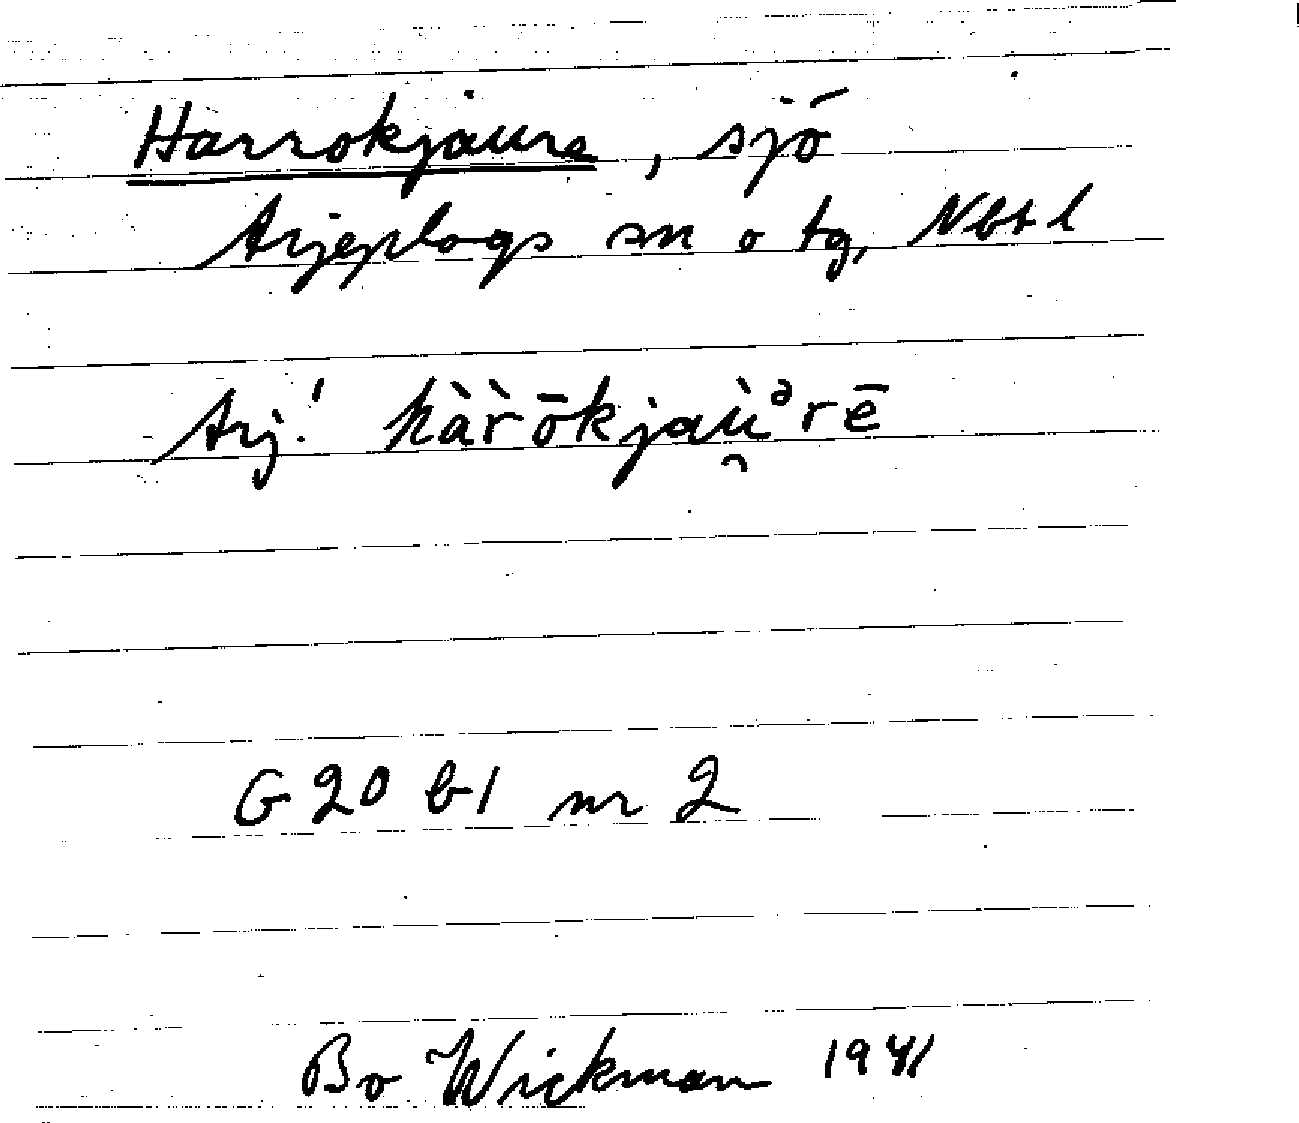 Harrokjaure, sjö
Arjeplogs sn o tg, Nbt l
Arj.' hàr̀ōkjaù̯ᵊrē
G 20 b1 nr 2
Bo Wickman 1941